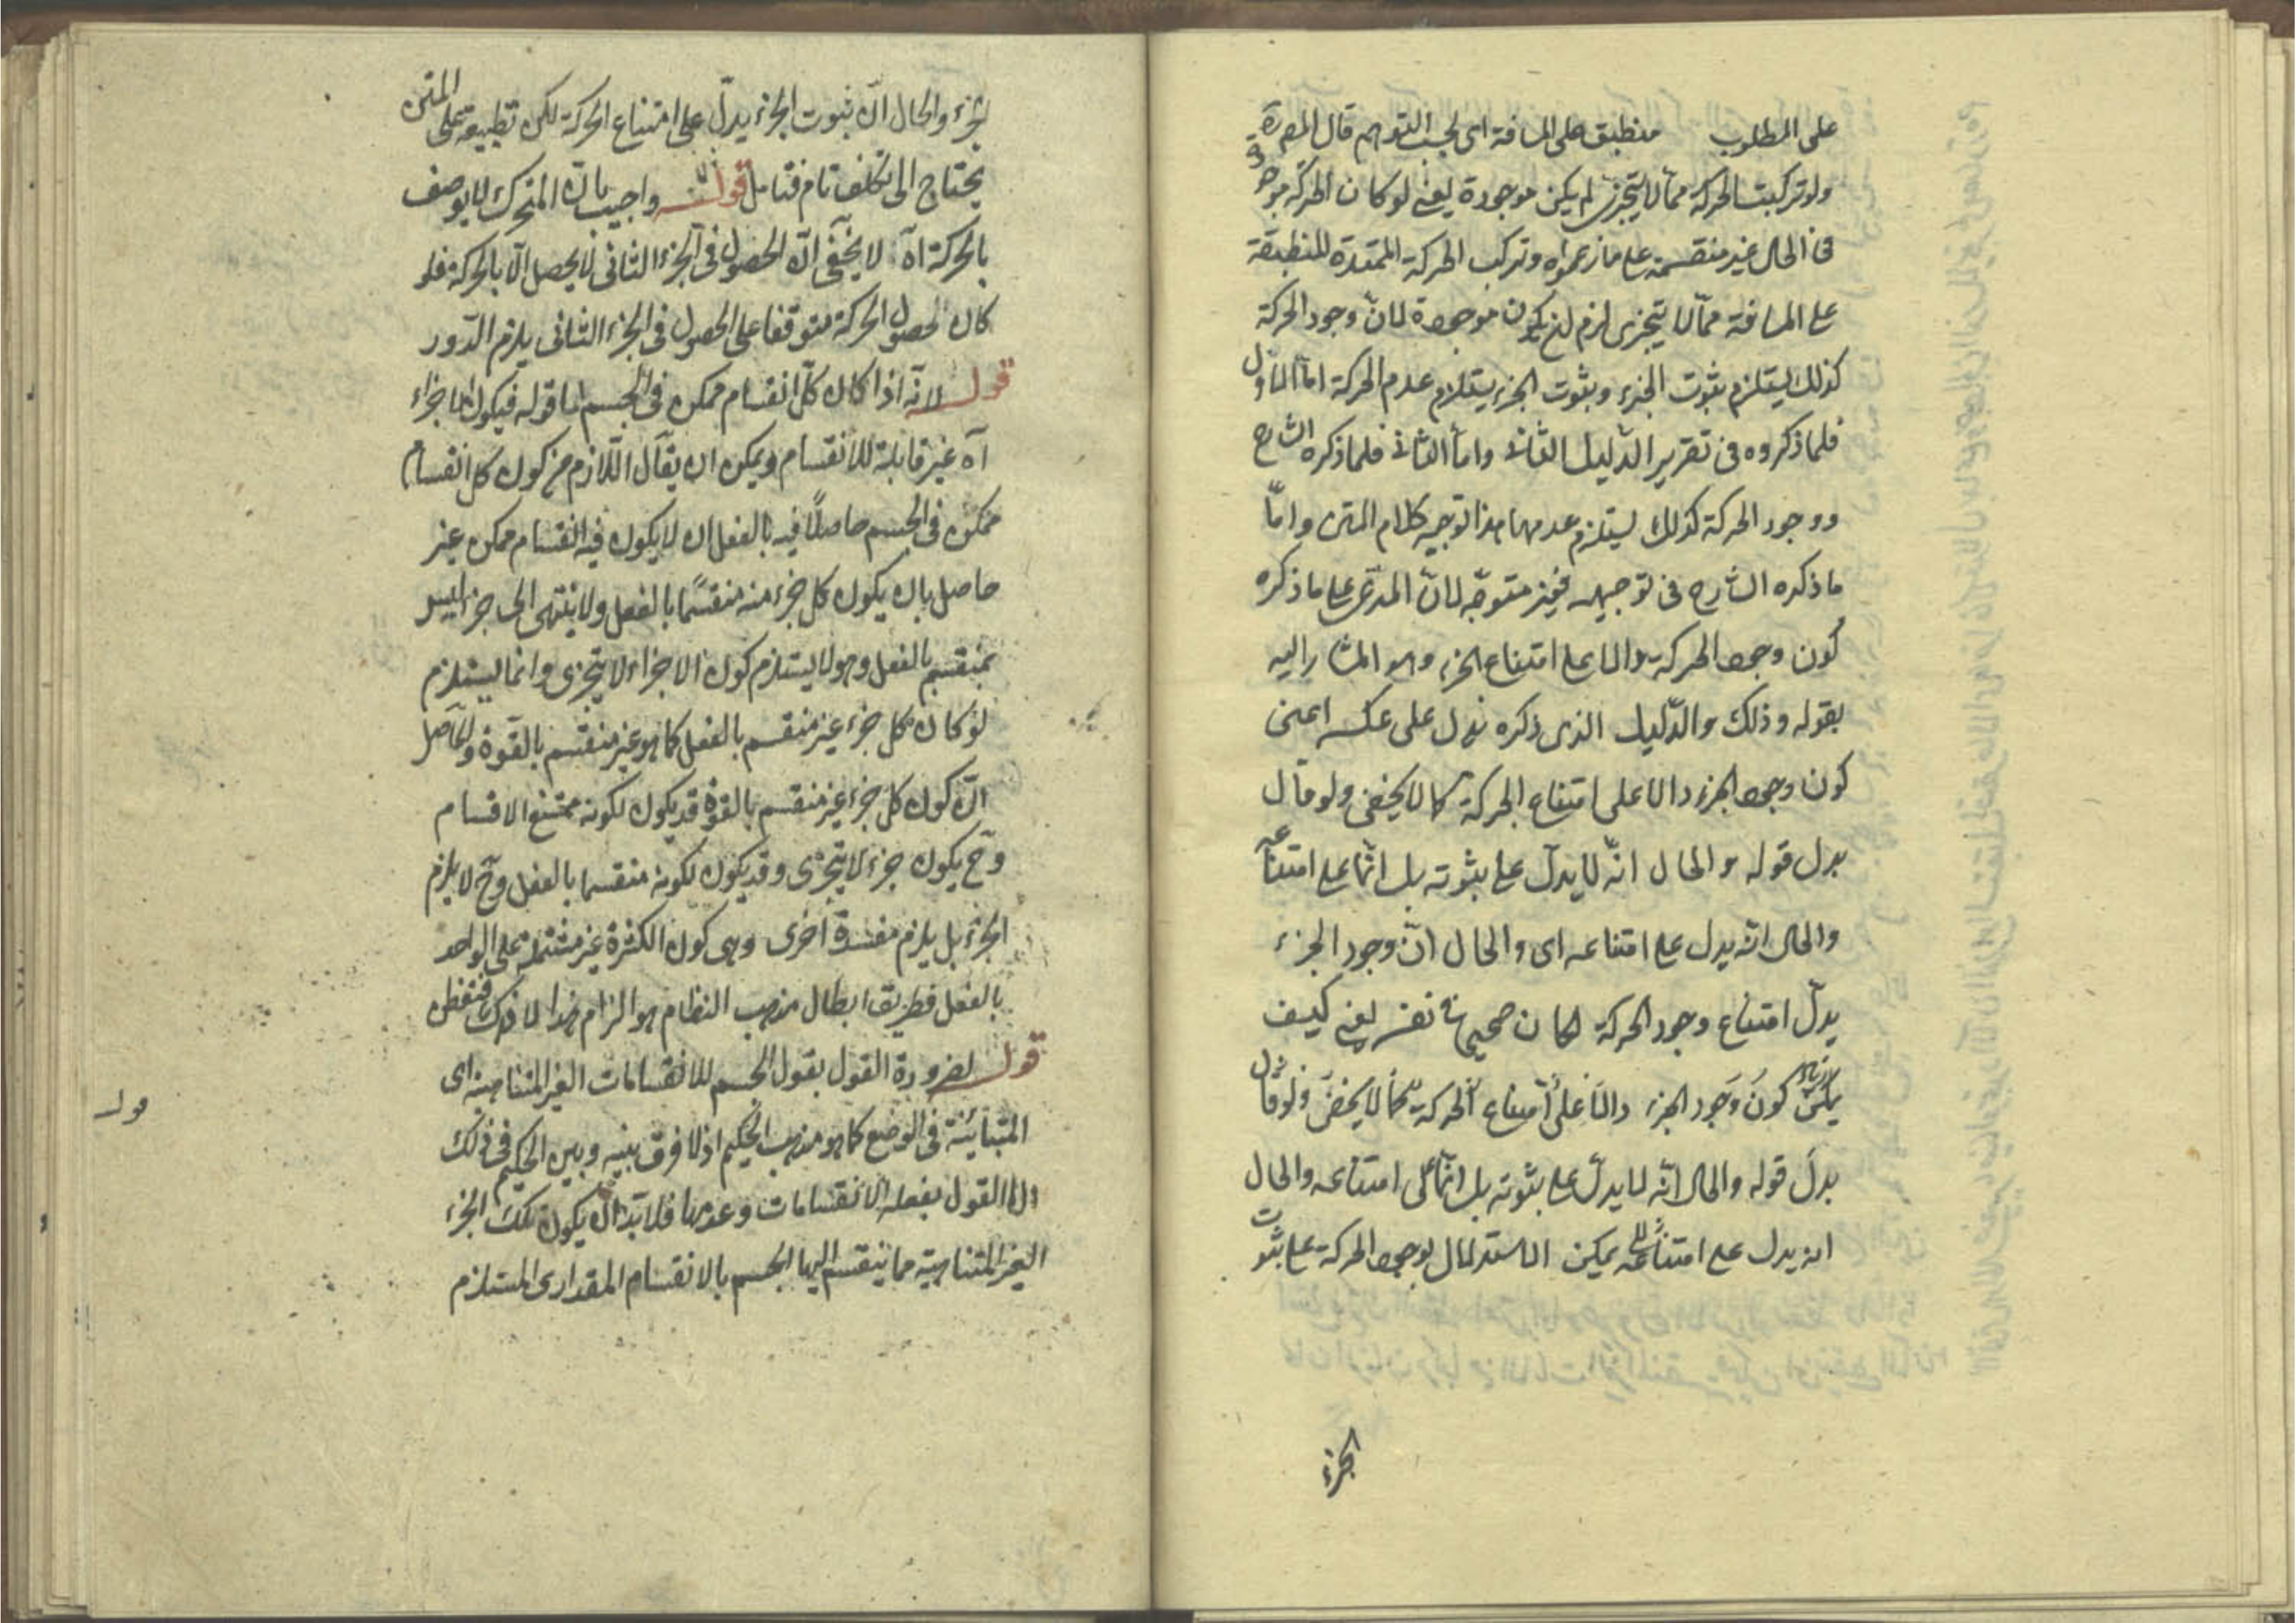 على المطلوب منطبق على المسافة اى بحسب التوهم قال المص رة
ولو تركبت الحركة مما لا يتجزى لم يكن موجودة يعنى لو كان الحركة موجودة
فى الحال غير منقسمة على ما زعموه وتركب الحركة الممتدة المنطبقة
على المسافة مما لا يتجزى لزم ان يكون موجودة لان وجود الحركة
كذلك يستلزم ثبوت الجزء وثبوت الجزء يستلزم عدم الحركة اما الاول
فلما ذكروه فى تقرير الدليل الثانى واما الثانى فلما ذكره الشارح
ووجود الحركة كذلك يستلزم عدمها هذا توجيه كلام المتن واما
ما ذكره الشارح فى توجيهه فغير متوجه لان المدعى على ما ذكره
كون وجود الحركة دالا على امتناع الجزء وهو المشار اليه
بقوله وذلك والدليل الذى ذكره يدل على عكسه اعنى
كون وجود الجزء دالا على امتناع الحركة كما لا يخفى ولو قال
بدل قوله والحال انه لا يدل على ثبوته بل انما على امتناعه
والحال انه يدل على امتناعه اى والحال ان وجود الجزء
يدل امتناع وجود الحركة لكان صحيحا فى نفسه يعنى كيف
يكن كون وجود الجزء دالا على امتناع الحركة كما لا يخفى ولو قال
بدل قوله والحال انه لا يدل على ثبوته بل انما على امتناعه والحال
انه يدل على امتناعه يمكن الاستدلال بوجود الحركة على ثبوت
الجزء
الجزء والحال ان ثبوت الجزء يدل على امتناع الحركة لكن تطبيقه على المتن
يحتاج الى تكلف تام فتامل قوله واجيب بان المتحرك لا يوصف
بالحركة اه لا يخفى ان الحصول فى الجزء الثانى لا يحصل الا بالحركة فلو
كان حصول الحركة متوقفا على الحصول فى الجزء الثانى يلزم الدور
قوله لانه اذا كان كل انقسام ممكن فى الجسم اما قوله فيكون الاجزاء
اه غير قابلة للانقسام ويمكن ان يقال اللازم من كون كل انقسام
ممكن فى الجسم حاصلا فيه بالفعل ان لا يكون فيه انقسام ممكن غير
حاصل بان يكون كل جزء منه منقسما بالفعل ولا ينتهى الى جزء ليس
بمنقسم بالفعل وهو لا يستلزم كون الاجزاء لا يتجزى وانما يستلزم
لو كان كل جزء غير منقسم بالفعل كما هو غير منقسم بالقوة والحاصل
ان كون كل جزء غير منقسم بالقوة قد يكون لكونه ممتنع الاقسام
وح يكون جزء لا يتجزى وقد يكون لكونه منقسما بالفعل وح لا يلزم
الجزء بل يلزم مفسدة اخرى وهى كون الكثرة غير مشتملة على الواحد
بالفعل فطريق ابطال مذهب النظام هو الزام هذا لا ذاك فتفطن
قوله لضرورة القول بقبول الجسم للانقسامات الغير المتناهية اى
المتباينة فى الوضع كما هو مذهب الحكيم اذ لا فرق بينه وبين الحكيم فى ذلك
الا القول بفعلية الانقسامات وعدمها فلا بد ان يكون تلك الجزء
الغير المتناهية مما ينقسم اليها الجسم بالانقسام المقدارى المستلزم
قوله